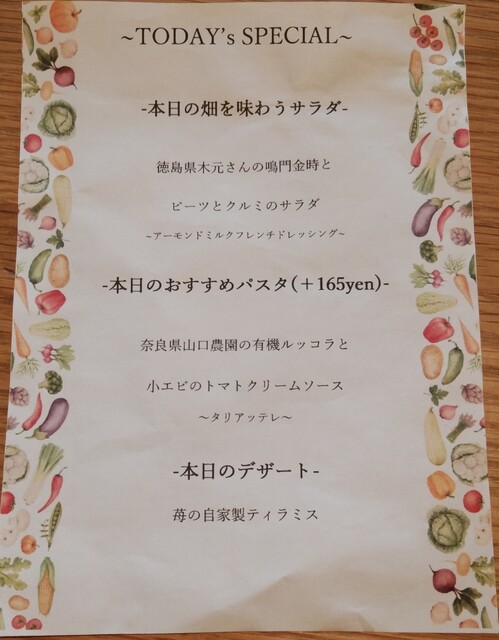 ~TODAY's SPECIAL~
-本日の畑を味わうサラダ-
徳島県木元さんの鳴門金時と
ビーツとクルミのサラダ
~アーモンドミルクフレンチドレッシング~
-本日のおすすめパスタ(＋165yen)-
奈良県山口農園の有機ルッコラと
小エビのトマトクリームソース
～タリアッテレ～
-本日のデザート-
苺の自家製ティラミス